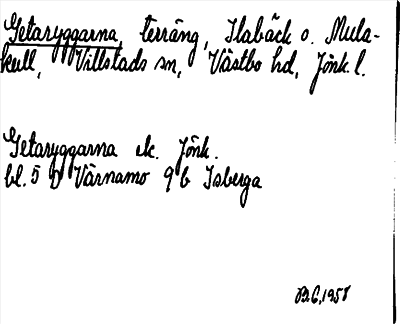 Getaryggarna, terräng, Ilabäck o. Mula-
kull, Villstads sn, Västbo hd, Jönk. l.
Getaryggarna ek. Jönk.
bl. 5 D Värnamo 9 b Isberga
B.G. 1958